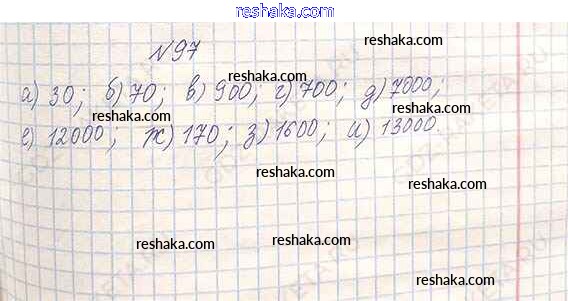 reshaka.com
№97
reshaka.com
reshaka.com
а) 30; б) 70; в) 900; г) 700; д) 7000;
reshaka.com
reshaka.com
е) 12000; ж) 170; з) 1600; и) 13000.
reshaka.com
reshaka.com
reshaka.com
reshaka.com
reshaka.com
reshaka.com